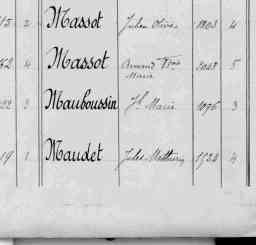 15 2 Massot Julien Olive 1803 4
62 4 Massot Armand Fçois Marie 5
22 3 Mauboussin Jh Marie 1076 3
19 1 Maudet Jules Mathurin 1522 4